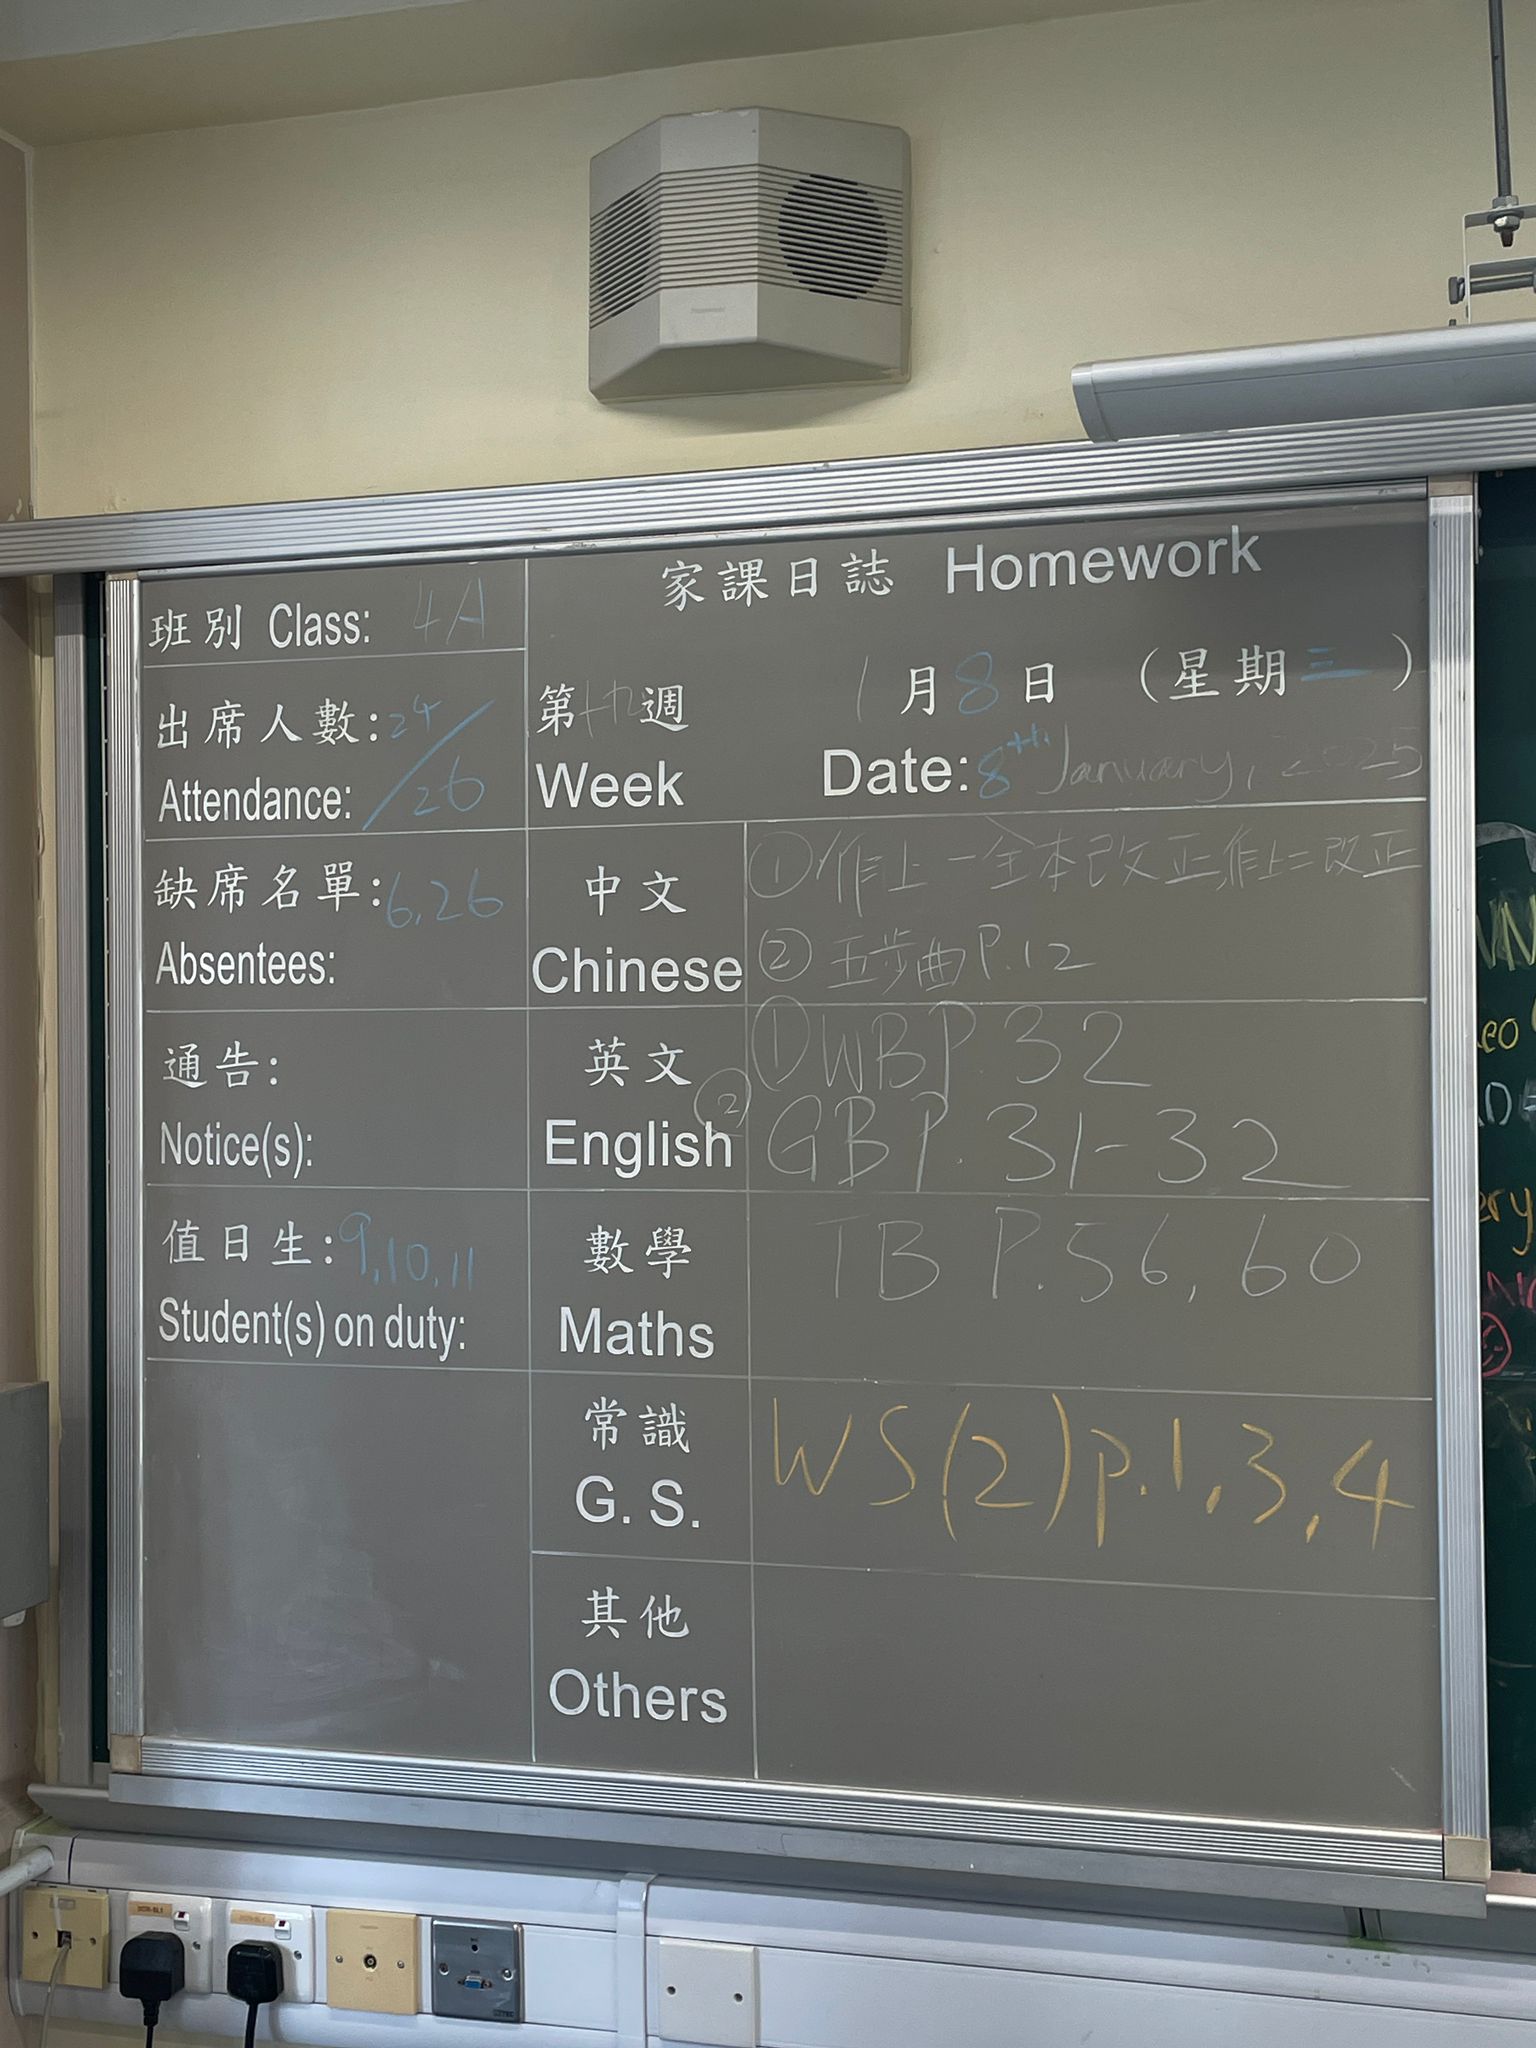 家課日誌 Homework
班別 Class: 4A
出席人數: 24/26
Attendance:
第十九週
Week
1月8日 (星期三)
Date: 8th January, 2025
缺席名單: 6,26
Absentees:
中文
Chinese
① 作上一全本改正,作上二改正
② 五步曲P.12
通告:
Notice(s):
英文
English
① WB P.32
② GB P.31-32
值日生: 9,10,11
Student(s) on duty:
數學
Maths
TB P.56,60
常識
G. S.
WS(2) p.1,3,4
其他
Others